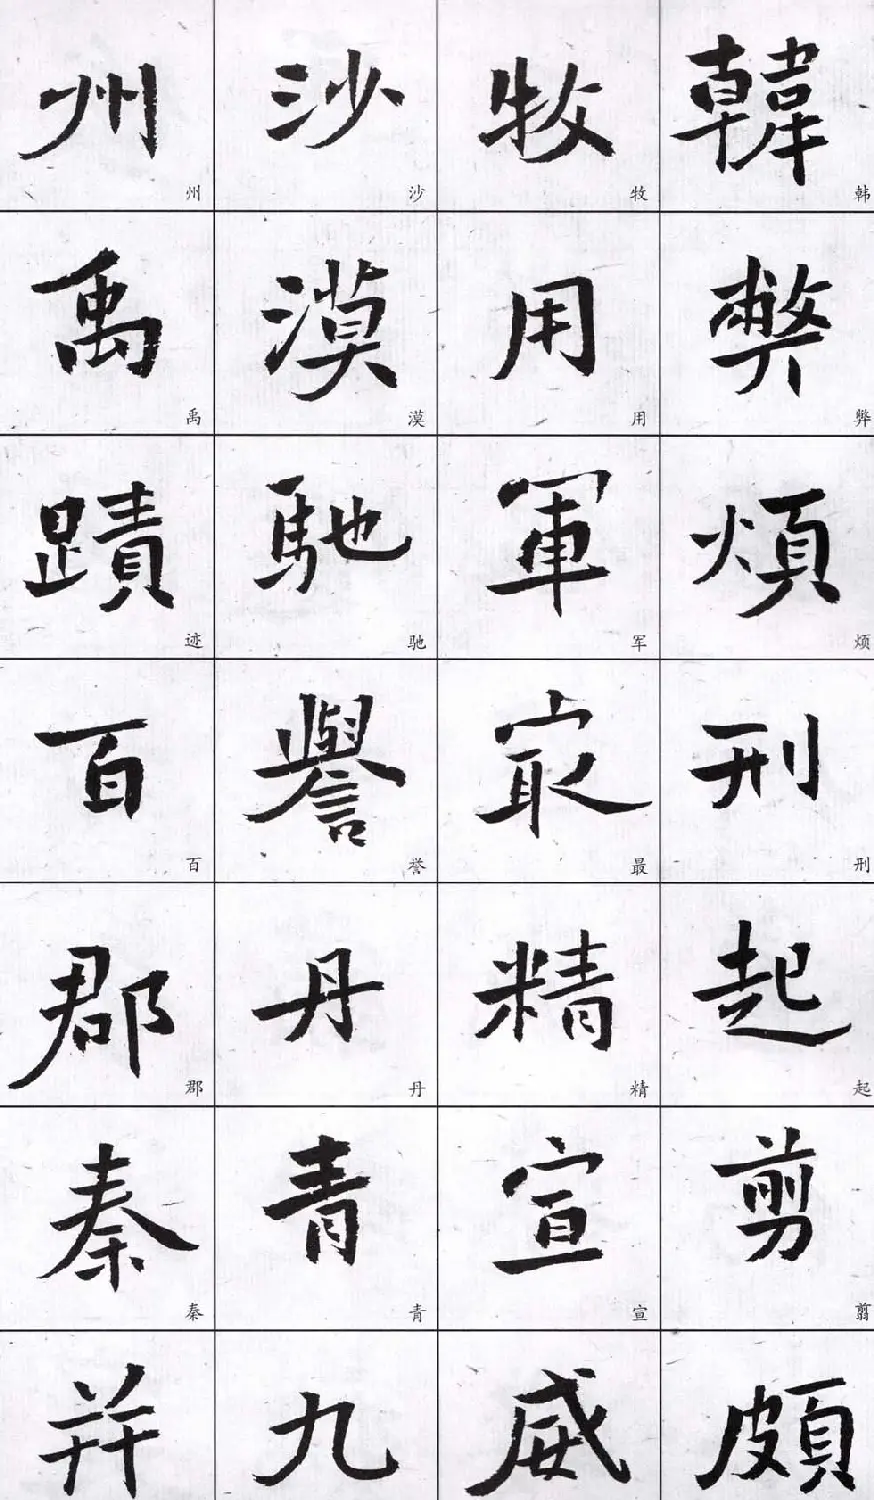 韓弊煩刑起剪頗
韩弊烦刑起翦
牧用軍最精宣威
牧用军最精宣
沙漠馳譽丹青九
沙漠驰誉丹青
州禹蹟百郡秦并
州禹迹百郡秦